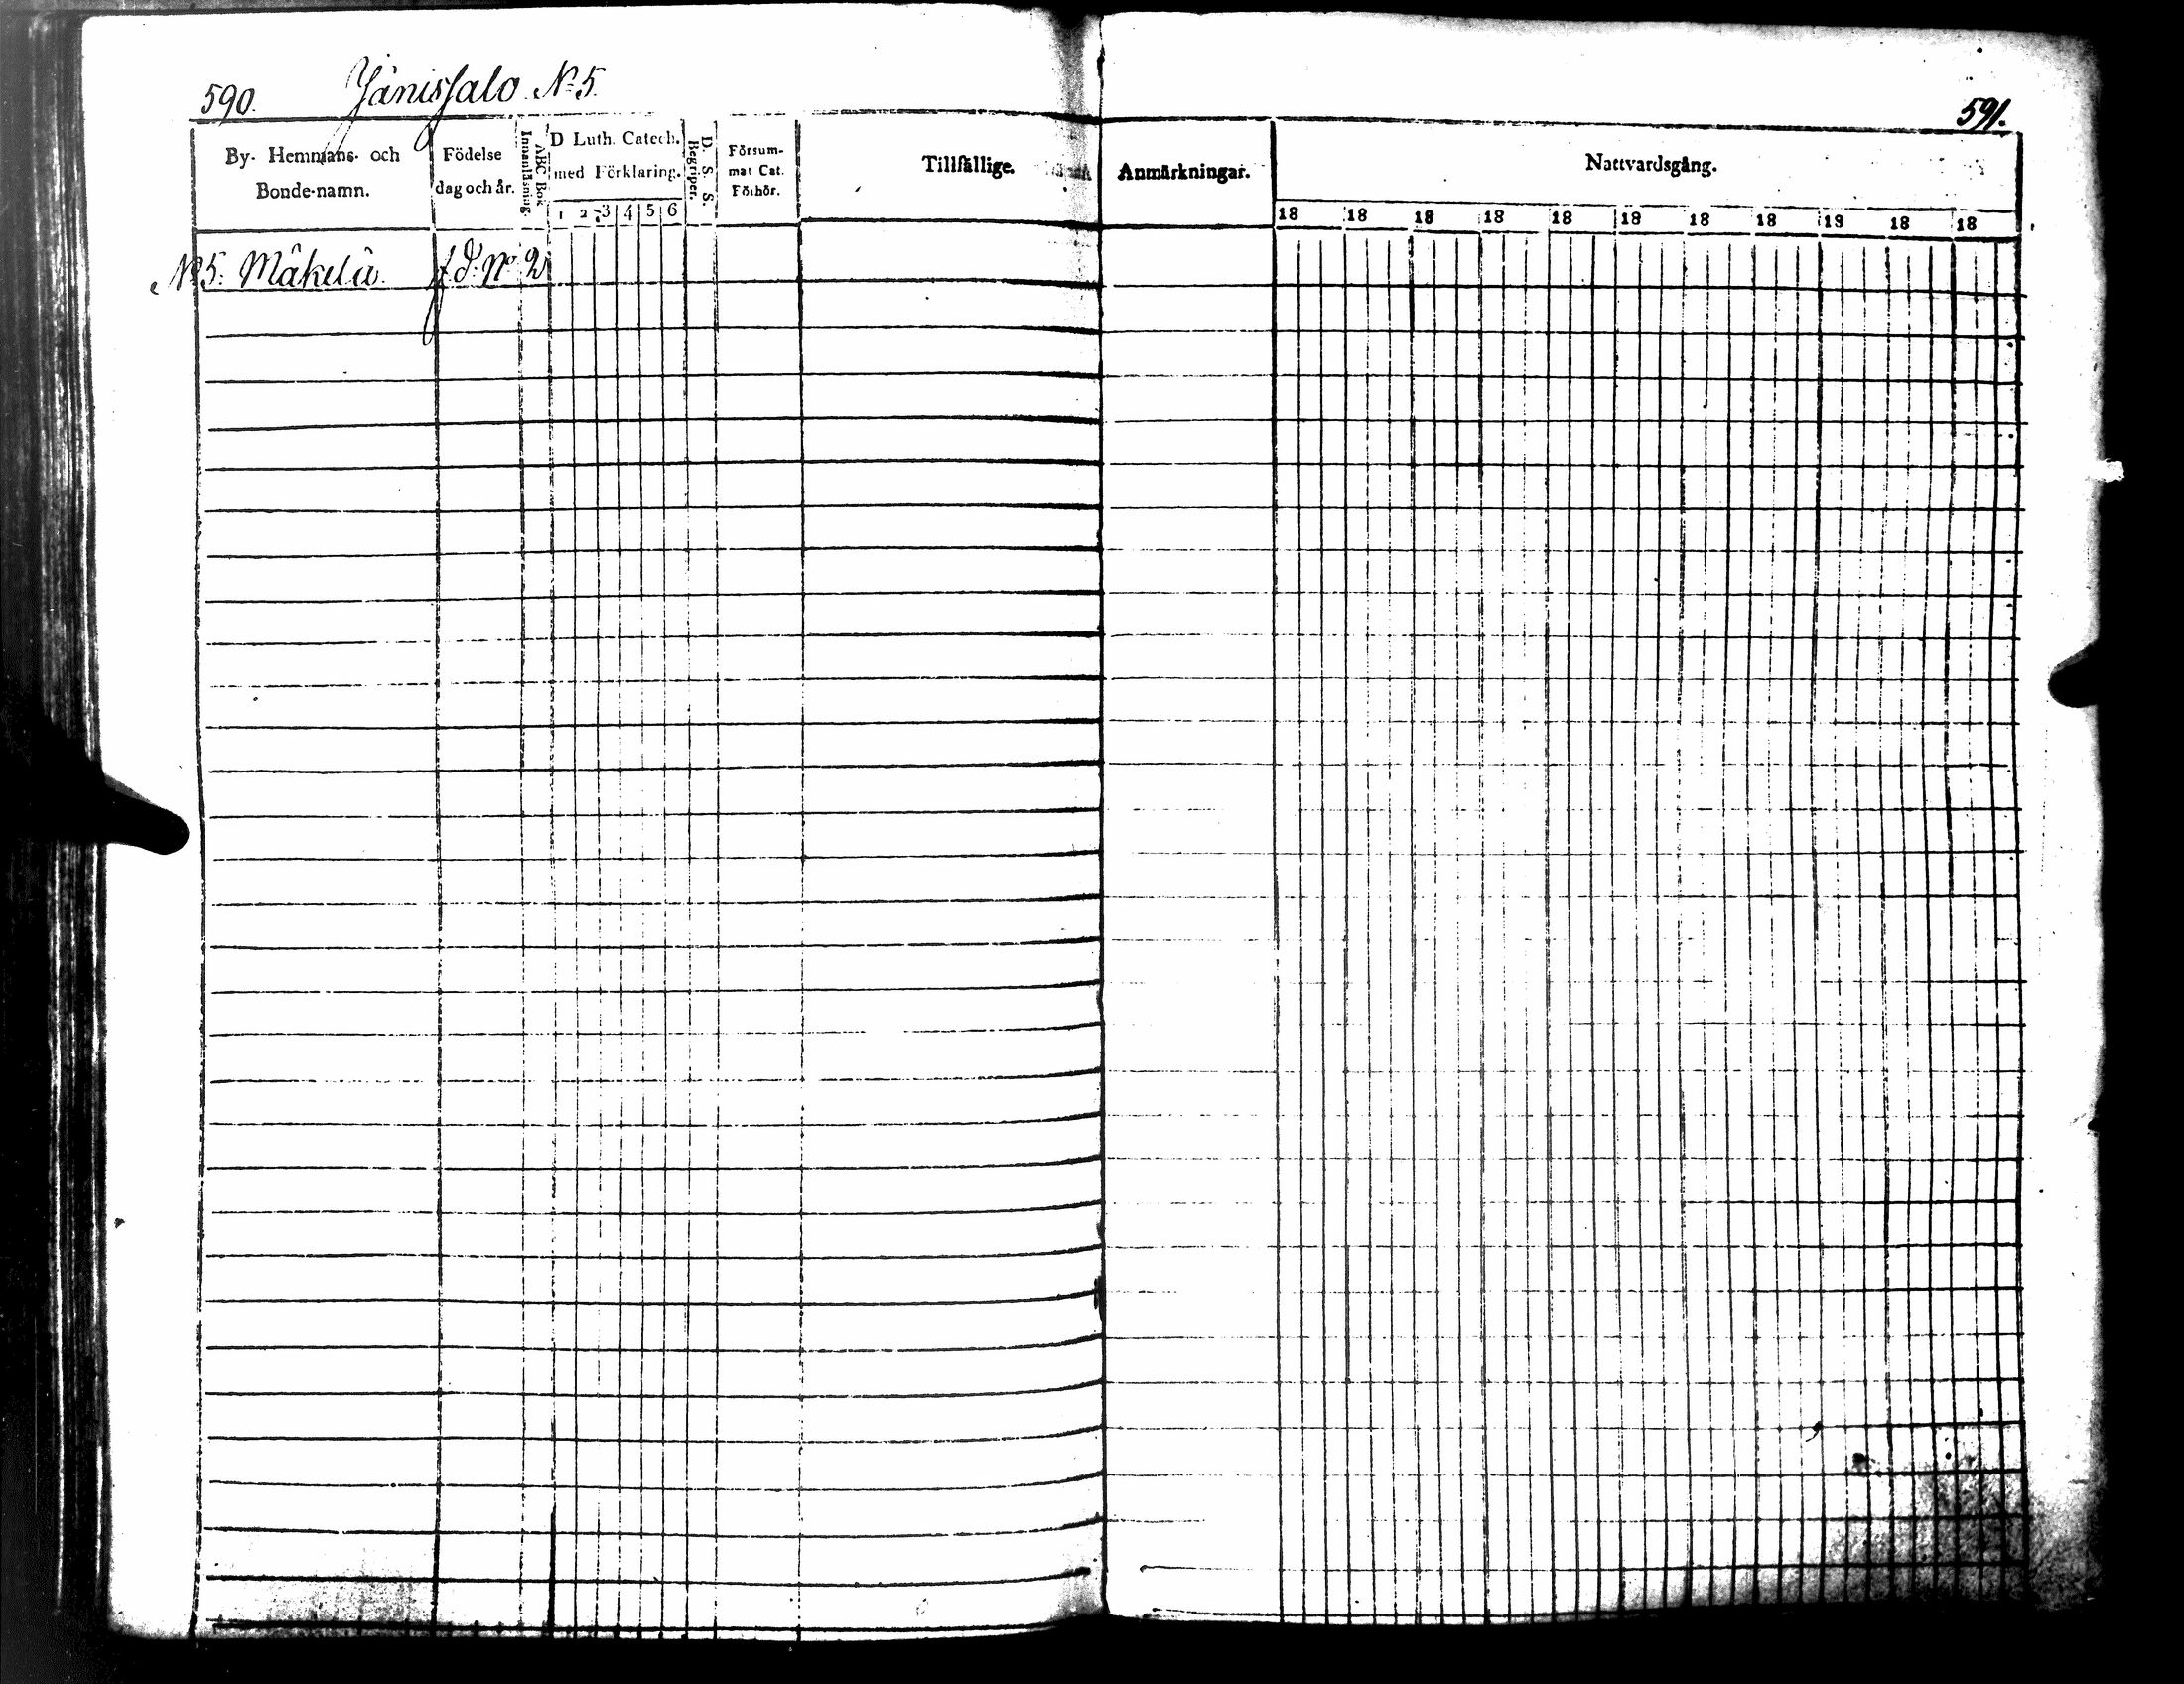 590. Jänissalo № 5.
591.
By- Hemmans- och
Bonde-namn.
Födelse
dag och år.
Innanläsning.
ABC Bok
D Luth. Catech.
med Förklaring.
1 2 3 4 5 6
D. S. S.
Begriper.
Försum-
mat Cat.
Förhör.
Tillfällige.
Anmärkningar.
Nattvardsgång.
18 18 18 18 18 18 18 18 18 18 18
№ 5. Mäkelä. f. d. No 2